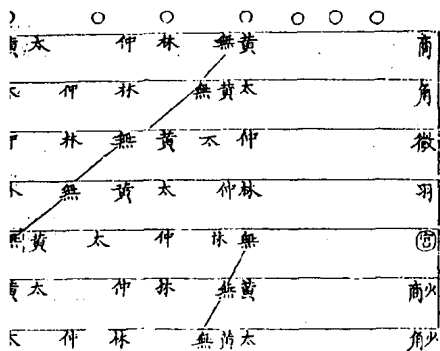 黃 太 仲 林 無 黃 商
太 仲 林 無 黃 太 角
仲 林 無 黃 太 仲 徵
林 無 黃 太 仲 林 羽
無 黃 太 仲 林 無 宮
黃 太 仲 林 無 黃 少商
太 仲 林 無 黃 太 少角